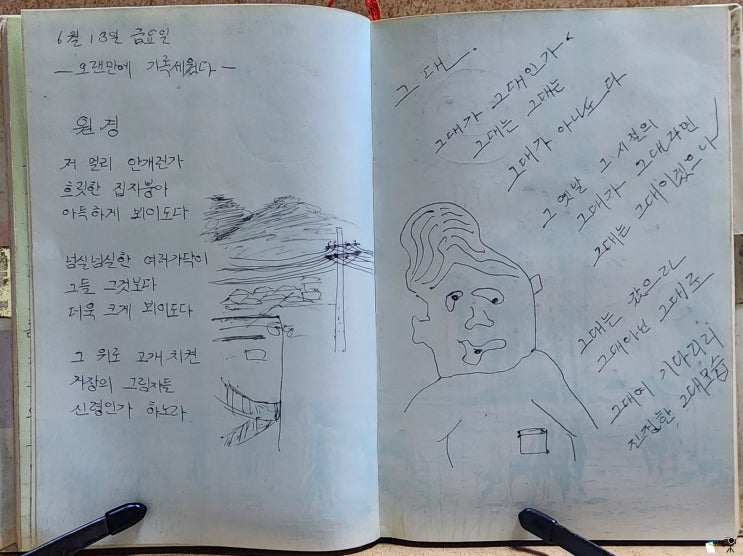 6월 13일 금요일
— 오랜만에 기록세웠다 —
원경
저 멀리 안개런가
흐릿한 집지붕아
아득하게 뵈이도다
넘실넘실한 여러가닥이
그들 그것보다
더욱 크게 뵈이도다
그 위로 고개 치켠
거장의 그림자들
신령인가 하노라
그대.
그대가 그대인가
그대는 그대는
그대가 아니노다
그 옛날 그 시절의
그대가 그대라면
그대는 그대이겠으나
그대는 갔으니
그대아닌 그대로
그대에 기다리리
진정한 그대모습